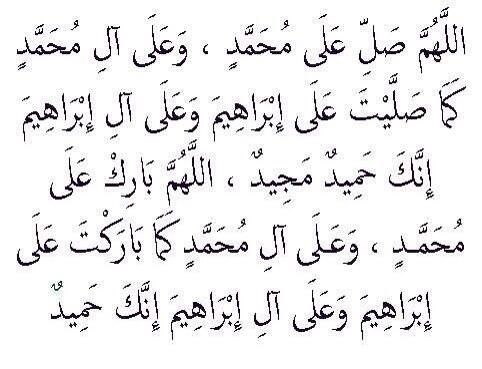 اللَّهُمَّ صَلِّ عَلَى مُحَمَّدٍ ، وَعَلَى آلِ مُحَمَّدٍ
كَمَا صَلَّيْتَ عَلَى إِبْرَاهِيمَ وَعَلَى آلِ إِبْرَاهِيمَ
إِنَّكَ حَمِيدٌ مَجِيدٌ ، اللَّهُمَّ بَارِكْ عَلَى
مُحَمَّدٍ ، وَعَلَى آلِ مُحَمَّدٍ كَمَا بَارَكْتَ عَلَى
إِبْرَاهِيمَ وَعَلَى آلِ إِبْرَاهِيمَ إِنَّكَ حَمِيدٌ